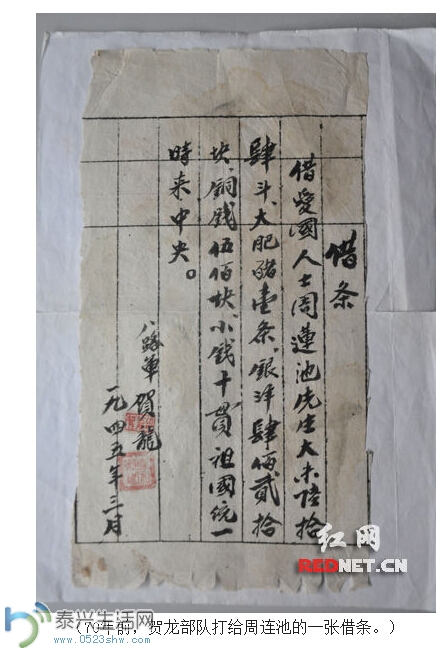 借条
借愛國人士周蓮池先生大米陸拾
肆斗、大肥豬壹条、銀洋肆佰貳拾
块、銅錢伍佰块、小錢十貫、祖國統一
時来中央。
八路軍 賀龍
一九四五年三月
红网
REDNET.CN
泰兴生活网
www.0523shw.com
（70年前，贺龙部队打给周连池的一张借条。）